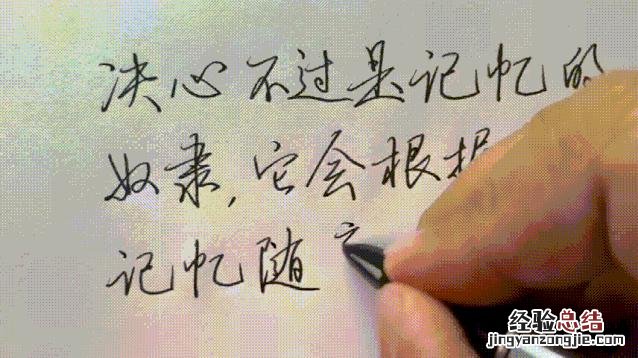 决心不过是记忆的
奴隶,它会根据
记忆随
经验总结
jingyanzongjie.com